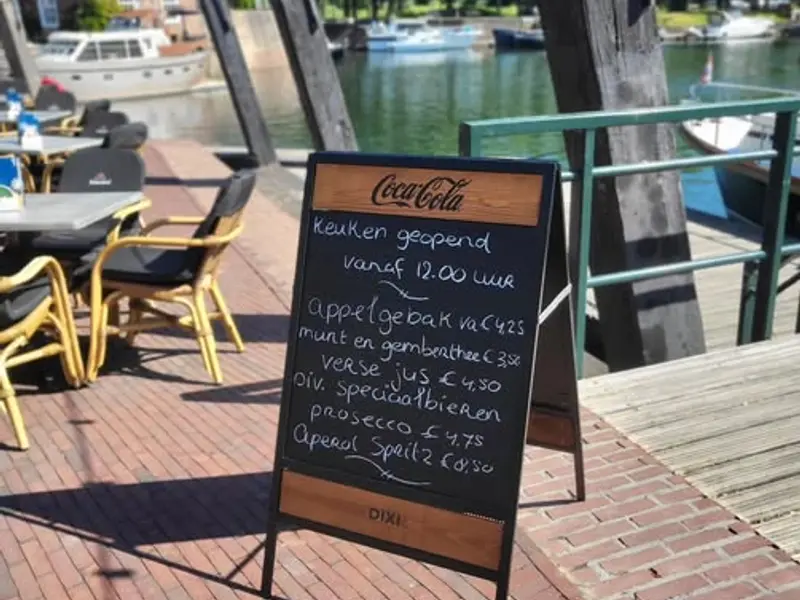 Coca-Cola
Keuken geopend
vanaf 12.00 uur
appelgebak va € 4,25
munt en gemberthee € 3,50
verse jus € 4,50
Div. speciaalbieren
prosecco € 4,75
Aperol Spritz € 8,50
DIXI